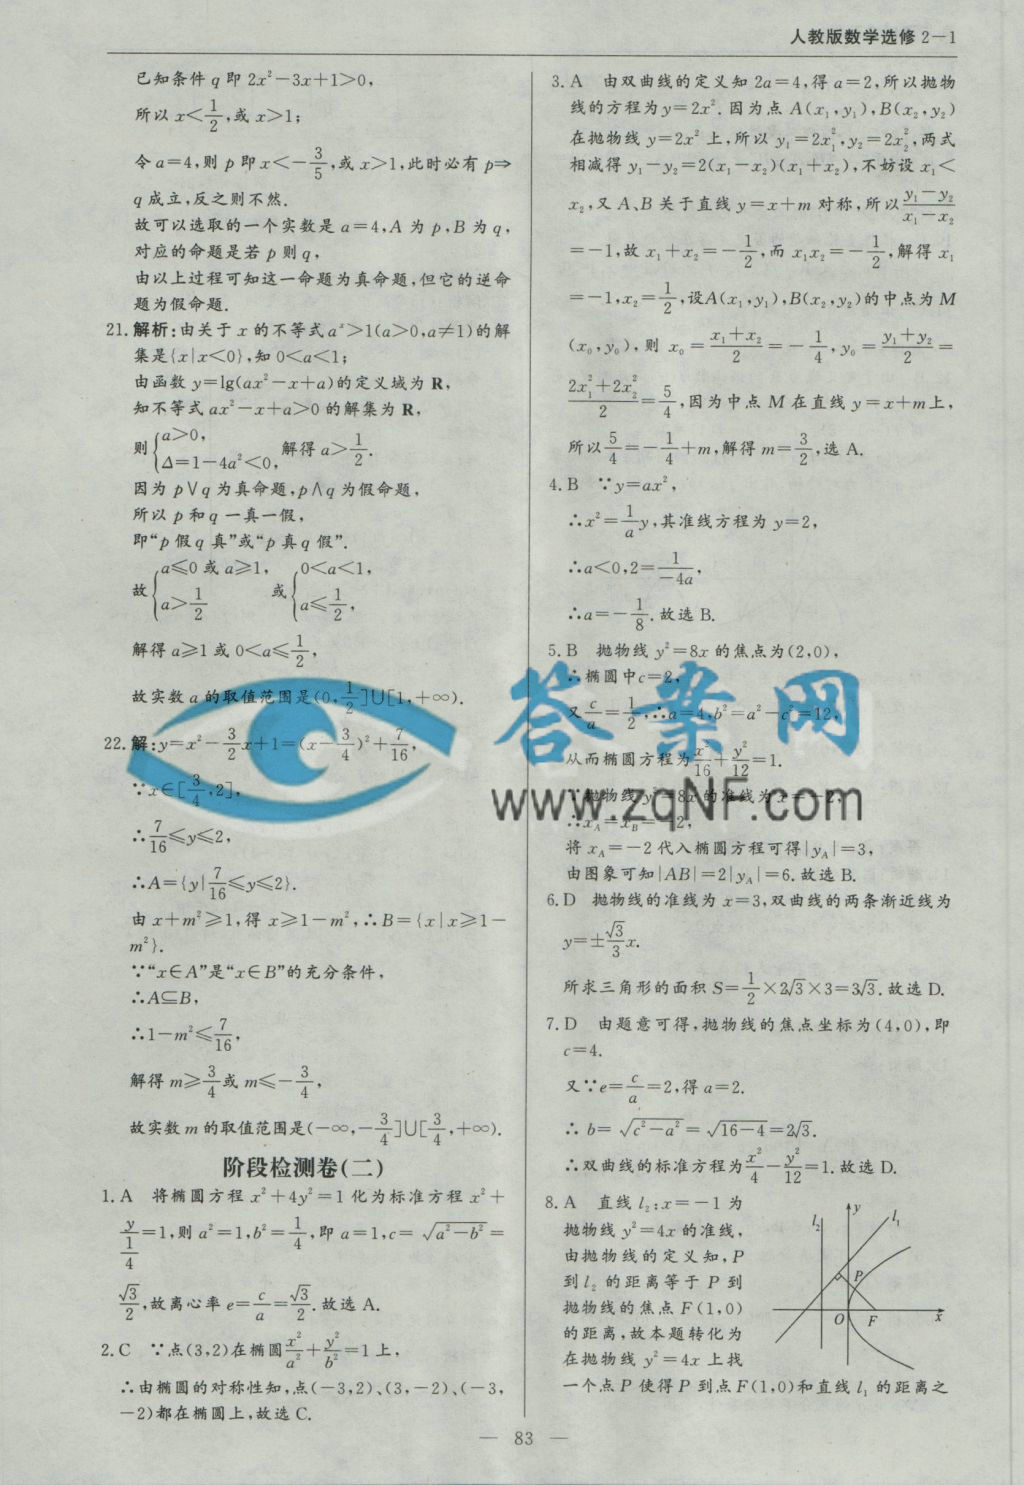 人教版数学选修2-1
已知条件q即2x²-3x+1>0,
所以x<1/2,或x>1;
令a=4,则p即x<-3/5,或x>1,此时必有p⇒
q成立,反之则不然.
故可以选取的一个实数是a=4,A为p,B为q,
对应的命题是若p则q,
由以上过程可知这一命题为真命题,但它的逆命
题为假命题.
21.解析:由关于x的不等式aˣ>1(a>0,a≠1)的解
集是{x|x<0},知0<a<1;
由函数y=lg(ax²-x+a)的定义域为R,
知不等式ax²-x+a>0的解集为R,
则{a>0, Δ=1-4a²<0, 解得a>1/2.
因为p∨q为真命题,p∧q为假命题,
所以p和q一真一假,
即“p假q真”或“p真q假”.
故{a≤0或a≥1, a>1/2 或{0<a<1, a≤1/2,
解得a≥1或0<a≤1/2,
故实数a的取值范围是(0,1/2]∪[1,+∞).
22.解:y=x²-3/2x+1=(x-3/4)²+7/16,
∵x∈[3/4,2],
∴7/16≤y≤2,
∴A={y|7/16≤y≤2}.
由x+m²≥1,得x≥1-m²,∴B={x|x≥1-
m²}.
∵“x∈A”是“x∈B”的充分条件,
∴A⊆B,
∴1-m²≤7/16,
解得m≥3/4或m≤-3/4,
故实数m的取值范围是(-∞,-3/4]∪[3/4,+∞).
阶段检测卷(二)
1.A 将椭圆方程x²+4y²=1化为标准方程x²+
y/(1/4)=1,则a²=1,b²=1/4,即a=1,c=√(a²-b²)=
√3/2,故离心率e=c/a=√3/2.故选A.
2.C ∵点(3,2)在椭圆x²/a²+y²/b²=1上,
∴由椭圆的对称性知,点(-3,2)、(3,-2)、(-3,
-2)都在椭圆上,故选C.
3.A 由双曲线的定义知2a=4,得a=2,所以抛物
线的方程为y=2x².因为点A(x₁,y₁),B(x₂,y₂)
在抛物线y=2x²上,所以y₁=2x₁²,y₂=2x₂²,两式
相减得y₁-y₂=2(x₁-x₂)(x₁+x₂),不妨设x₁<
x₂,又A、B关于直线y=x+m对称,所以(y₁-y₂)/(x₁-x₂)
=-1,故x₁+x₂=-1/2,而x₁x₂=-1/2,解得x₁
=-1,x₂=1/2,设A(x₁,y₁),B(x₂,y₂)的中点为M
(x₀,y₀),则x₀=(x₁+x₂)/2=-1/4,y₀=(y₁+y₂)/2=
(2x₁²+2x₂²)/2=5/4,因为中点M在直线y=x+m上,
所以5/4=-1/4+m,解得m=3/2,选A.
4.B ∵y=ax²,
∴x²=1/a y,其准线方程为y=2,
∴a<0,2=1/(-4a),
∴a=-1/8.故选B.
5.B 抛物线y²=8x的焦点为(2,0),
∴椭圆中c=2,
又c/a=1/2,∴a=4,b²=a²-c²=12,
从而椭圆方程为x²/16+y²/12=1.
∵抛物线y²=8x的准线为x=-2,
∴x_A=x_B=-2,
将x_A=-2代入椭圆方程可得|y_A|=3,
由图象可知|AB|=2|y_A|=6.故选B.
6.D 抛物线的准线为x=3,双曲线的两条渐近线为
y=±√3/3 x.
所求三角形的面积S=1/2×2√3×3=3√3.故选D.
7.D 由题意可得,抛物线的焦点坐标为(4,0),即
c=4.
又∵e=c/a=2,得a=2.
∴b=√(c²-a²)=√(16-4)=2√3.
∴双曲线的标准方程为x²/4-y²/12=1.故选D.
8.A 直线l₂:x=-1为
抛物线y²=4x的准线,
由抛物线的定义知,P
到l₂的距离等于P到
抛物线的焦点F(1,0)
的距离,故本题转化为
在抛物线y²=4x上找
一个点P使得P到点F(1,0)和直线l₁的距离之
l₂ y l₁
P
O F x
答案网
www.zqNF.com
— 83 —